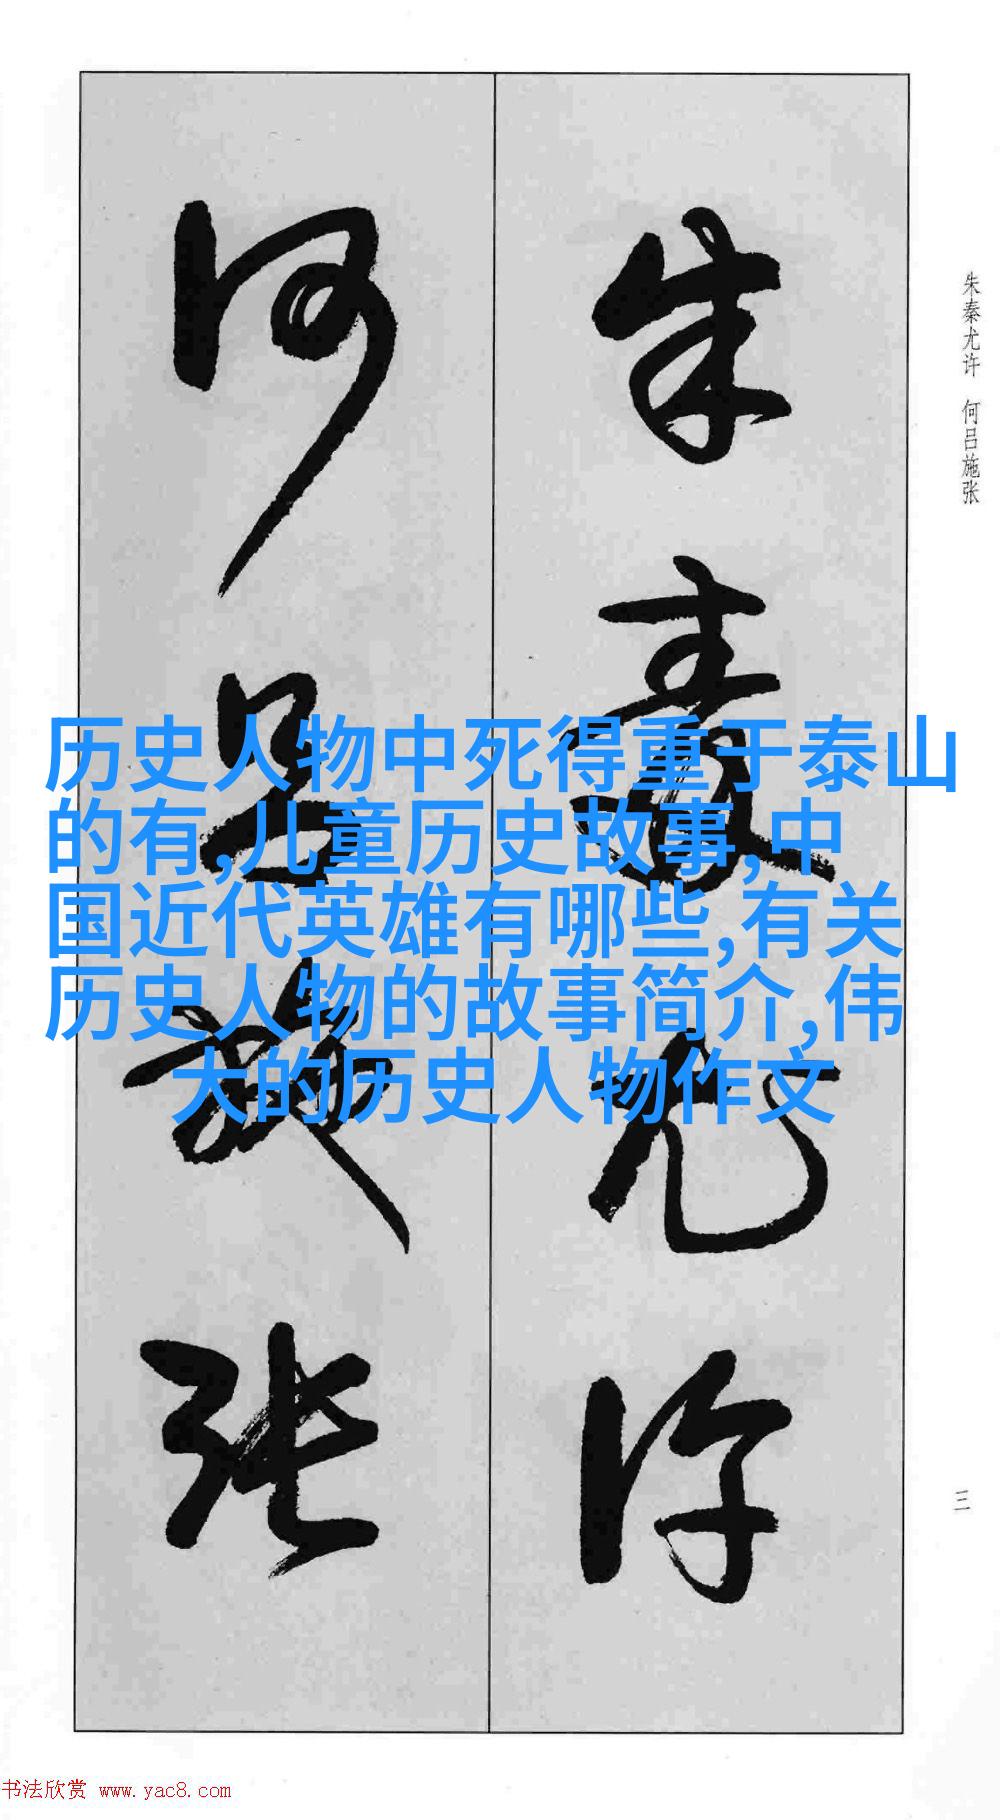 朱秦尤许 何吕施张
朱秦尤许
何吕施张
历史人物中死得重于泰山
的有,儿童历史故事,中
国近代英雄有哪些,有关
历史人物的故事简介,伟
大的历史人物作文
三
书法欣赏 www.yac8.com